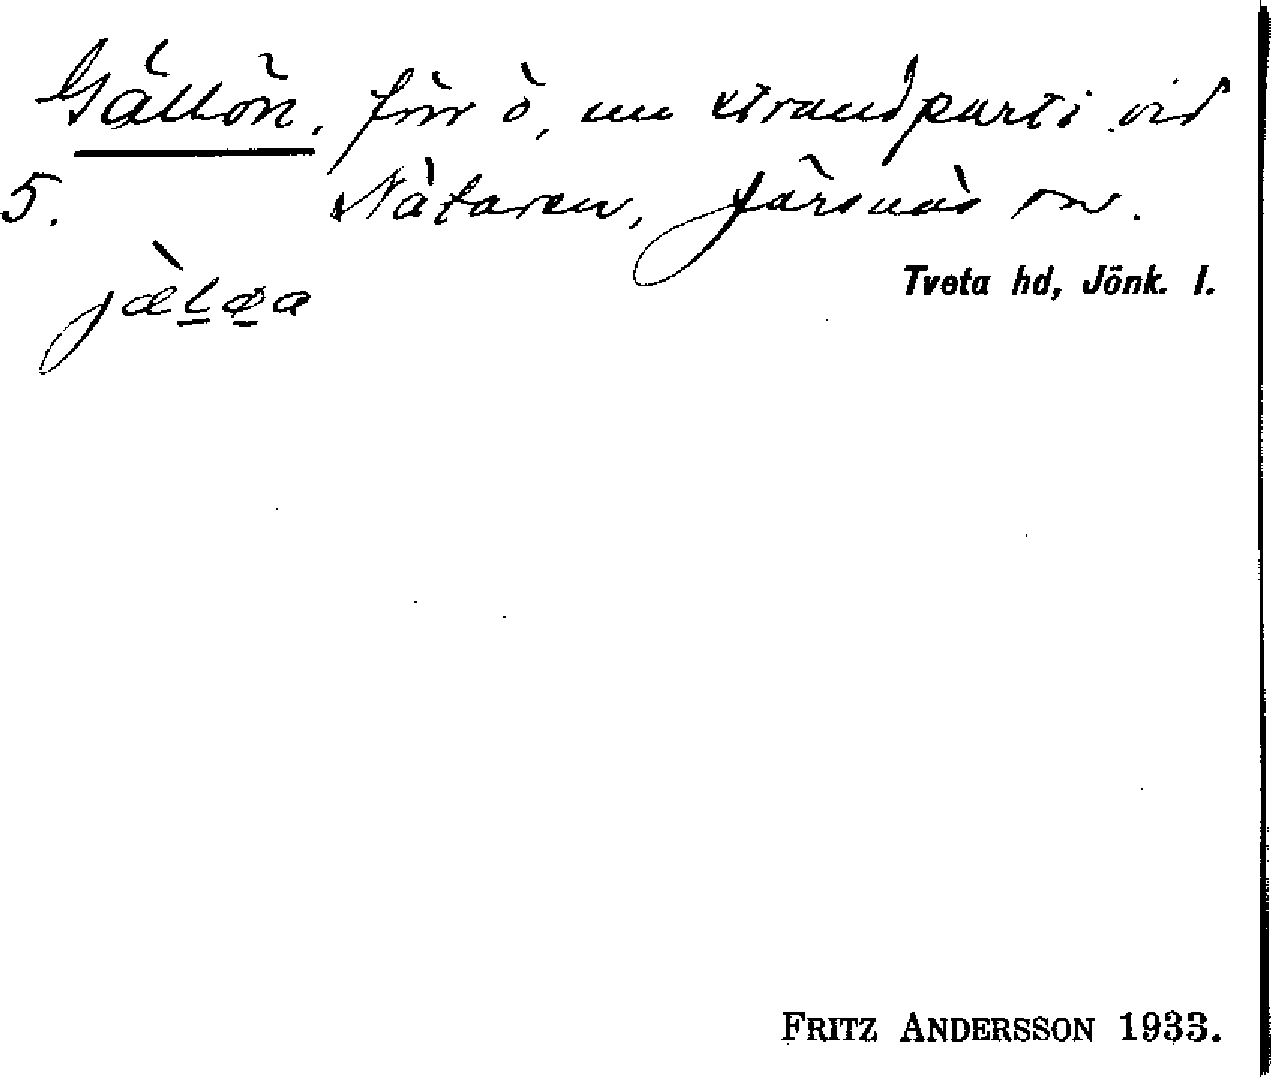 Gällön, förr ö, nu strandparti vid
5. Nätaren, Järsnäs sn.
Tveta hd, Jönk. l.
jæ̀l̠ø̠a
FRITZ ANDERSSON 1933.